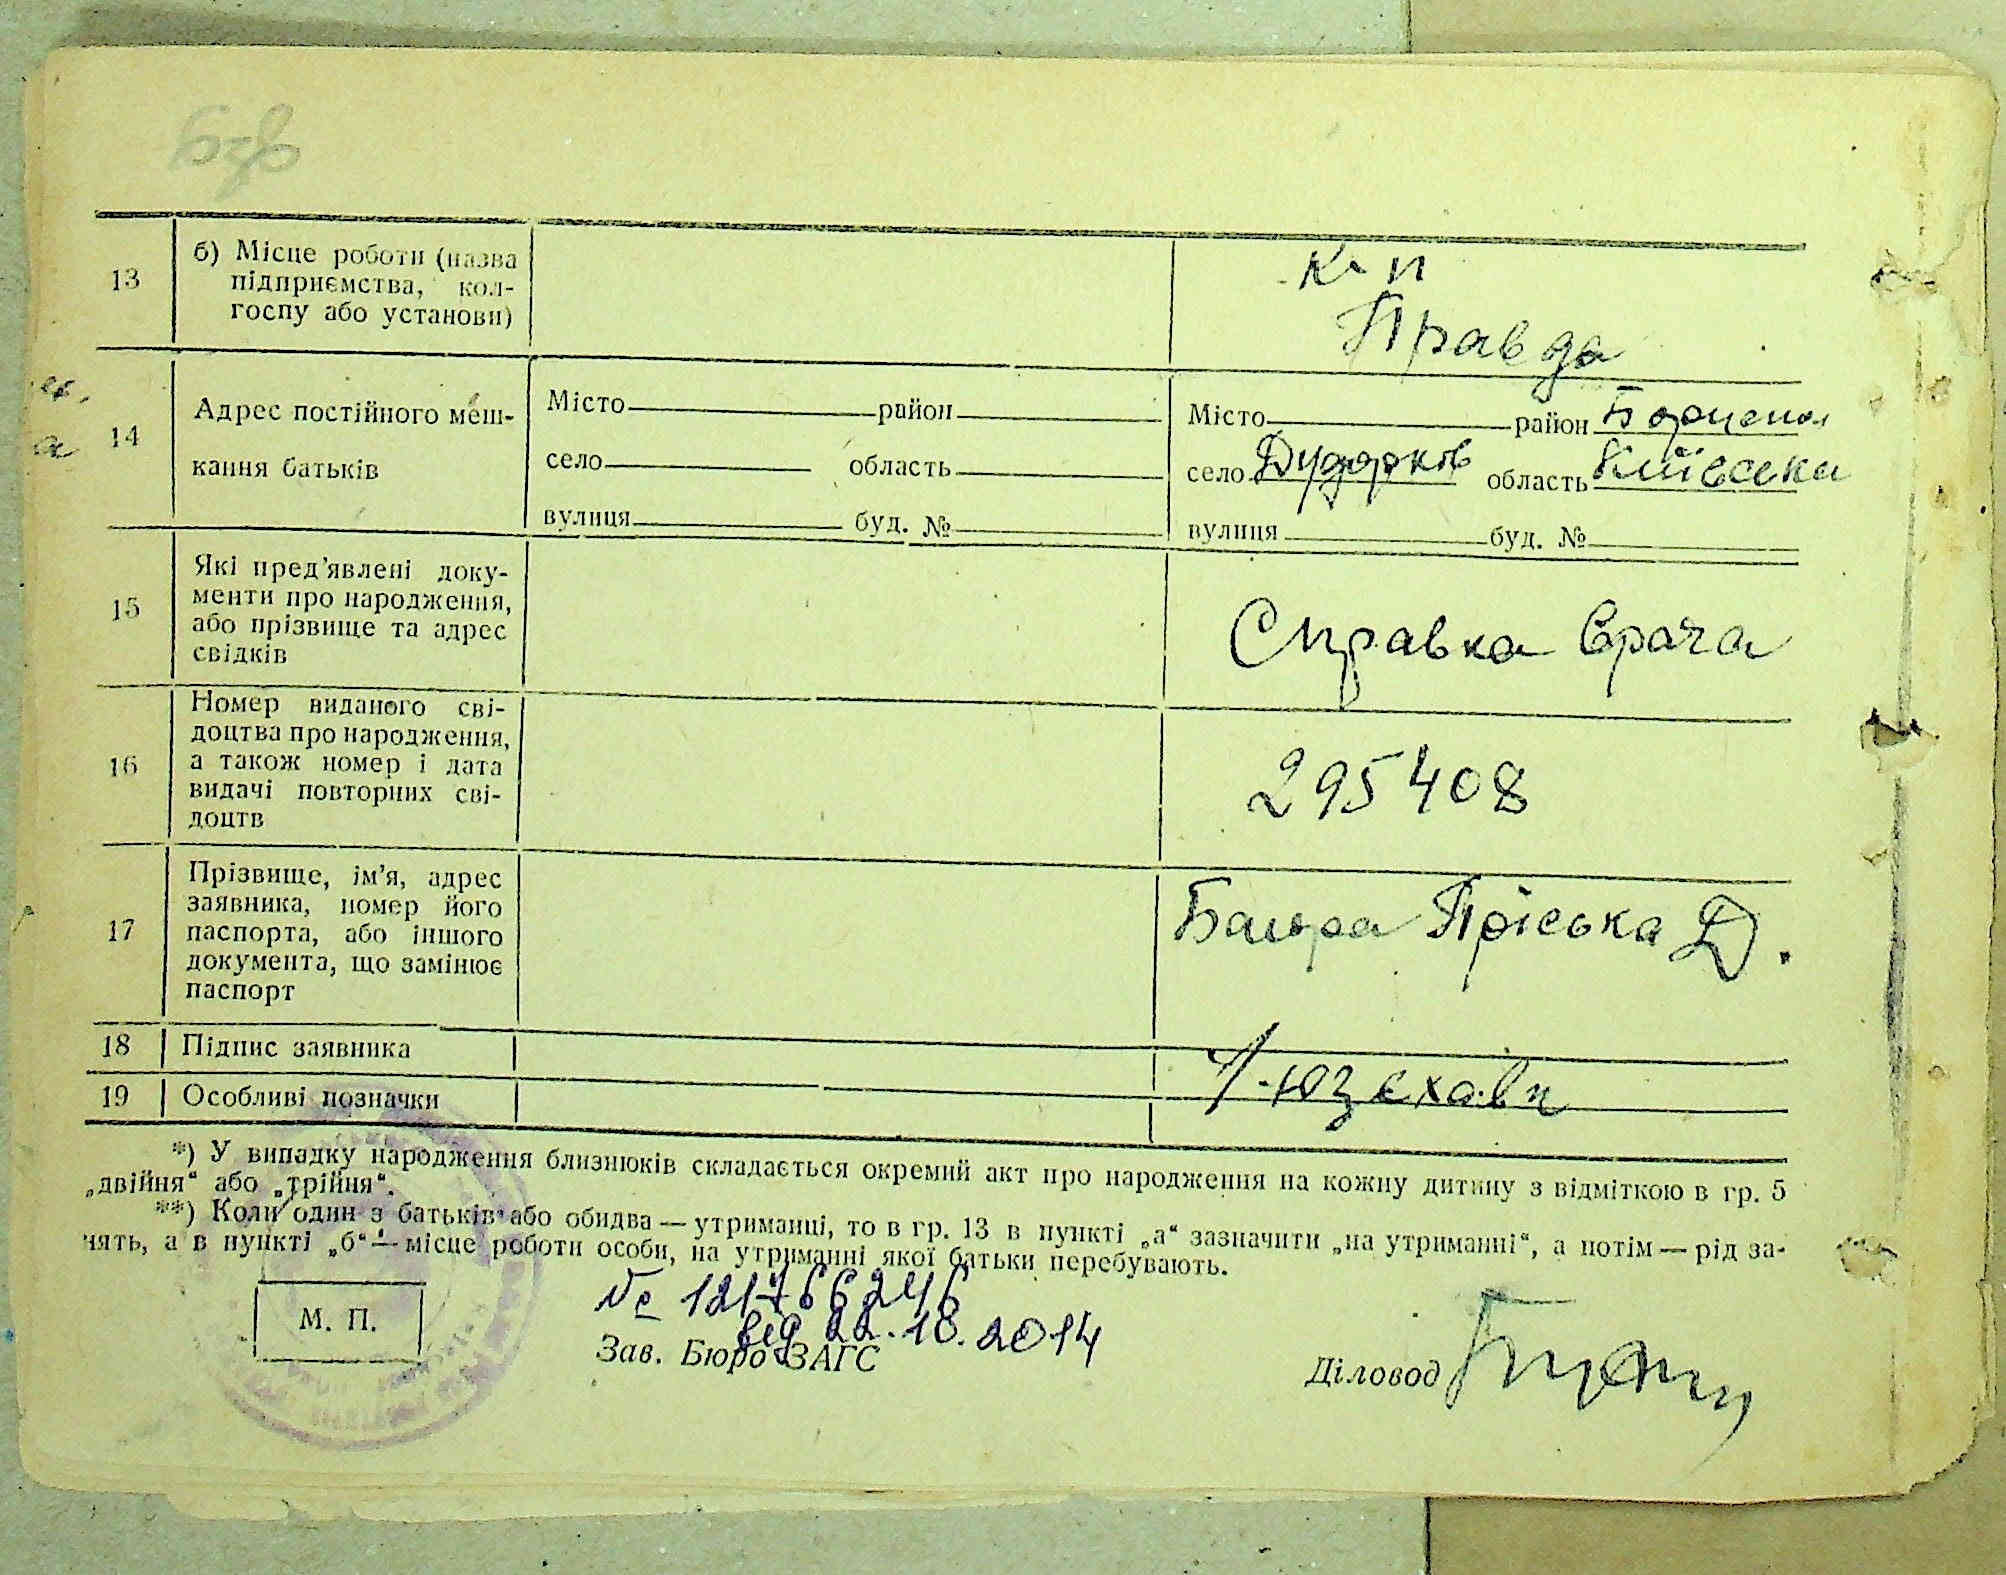 13
б) Місце роботи (назва
підприємства, кол-
госпу або установи)
к-п
Правда
14
Адрес постійного меш-
кання батьків
Місто район
село область
вулиця буд. №
Місто район
село Дударків область Київська
вулиця буд. №
15
Які пред’явлені доку-
менти про народження,
або прізвище та адрес
свідків
Справка врача
16
Номер виданого сві-
доцтва про народження,
а також номер і дата
видачі повторних сві-
доцтв
295408
17
Прізвище, ім’я, адрес
заявника, номер його
паспорта, або іншого
документа, що замінює
паспорт
Пріська Д.
18 Підпис заявника
19 Особливі позначки
*) У випадку народження близнюків складається окремий акт про народження на кожну дитину з відміткою в гр. 5
„двійня“ або „трійня“.
**) Коли один з батьків або обидва — утриманці, то в гр. 13 в пункті „а“ зазначити „на утриманні“, а потім — рід за-
нять, а в пункті „б“ — місце роботи особи, на утриманні якої батьки перебувають.
М. П.
від 22.10.2014
Зав. Бюро ЗАГС
Діловод